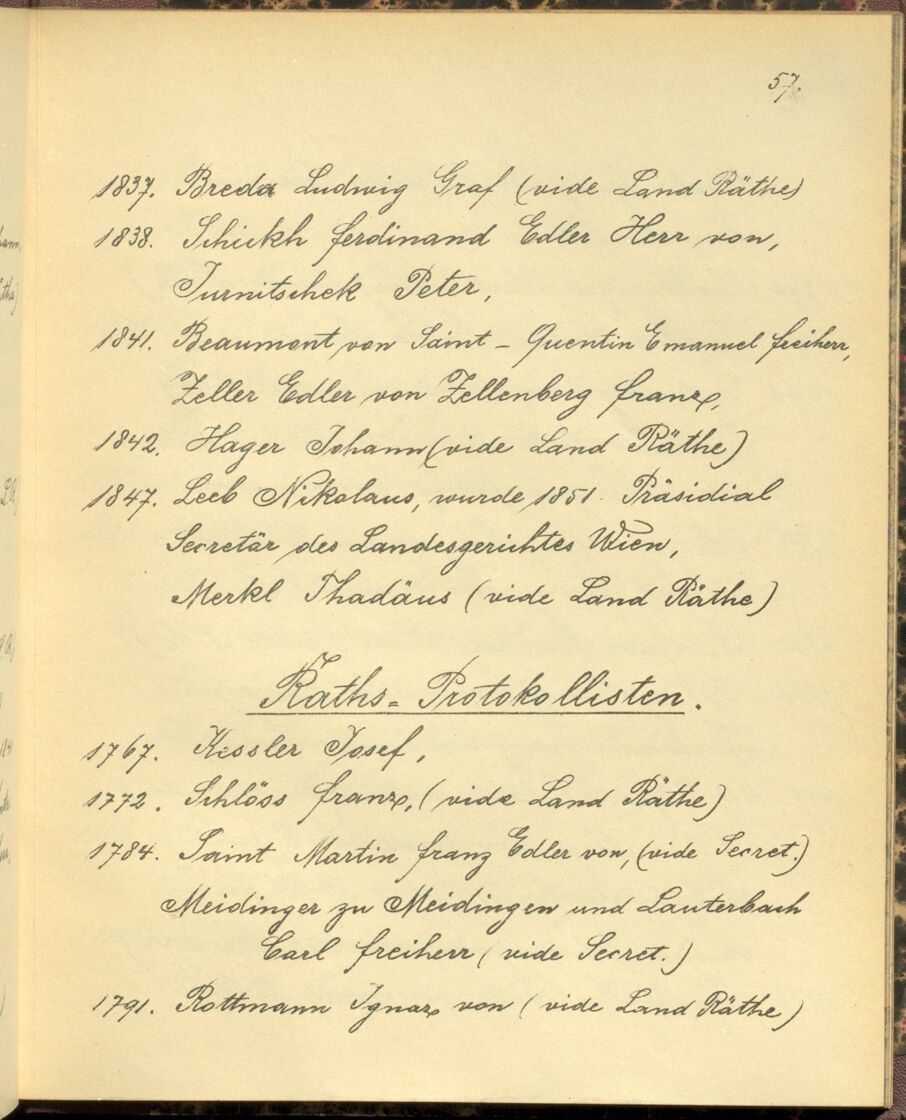 57.
1837. Breda Ludwig Graf (vide Land Räthe)
1838. Schickh Ferdinand Edler Herr von,
Turnitschek Peter,
1841. Beaumont von Saint - Quentin Emanuel Freiherr,
Zeller Edler von Zellenberg Franz,
1842. Hager Johann (vide Land Räthe)
1847. Leeb Nikolaus, wurde 1851 Präsidial
Secretär des Landesgerichtes Wien,
Merkl Thadäus (vide Land Räthe)
Raths=Protokollisten.
1767. Kessler Josef,
1772. Schlöss Franz, (vide Land Räthe)
1784. Saint Martin Franz Edler von, (vide Secret.)
Meidinger zu Meidingen und Lauterbach
Carl Freiherr (vide Secret.)
1791. Rottmann Ignaz von (vide Land Räthe)